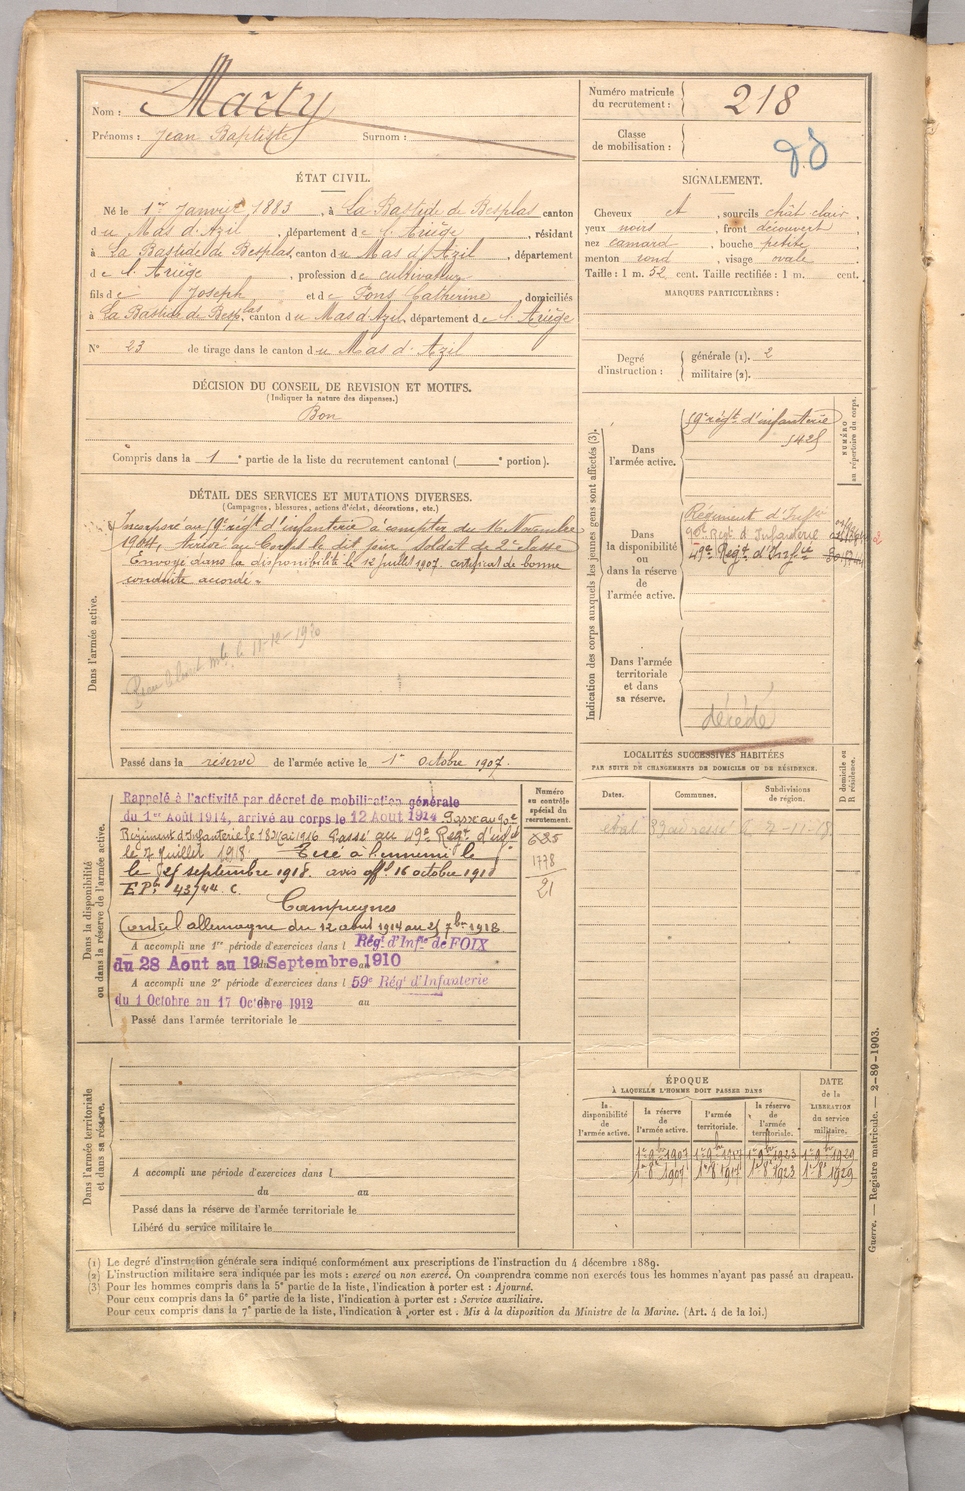 Nom : Marty
Prénoms : Jean Baptiste Surnom :
Numéro matricule du recrutement : 218
Classe de mobilisation :
ÉTAT CIVIL.
Né le 1er Janvier 1883, à La Bastide de Besplas canton
du Mas d'Azil, département de l'Ariège, résidant
à La Bastide de Besplas, canton du Mas d'Azil, département
de l'Ariège, profession de cultivateur
fils de Joseph et de Pons Catherine, domiciliés
à La Bastide de Besplas, canton du Mas d'Azil, département de l'Ariège
N° 23 de tirage dans le canton du Mas d'Azil
SIGNALEMENT.
Cheveux et, sourcils chât clair,
yeux noirs, front découvert
nez camard, bouche petite
menton rond, visage ovale
Taille : 1 m. 52 cent. Taille rectifiée : 1 m. cent.
MARQUES PARTICULIÈRES :
Degré d'instruction : générale (1). 2
militaire (2).
DÉCISION DU CONSEIL DE REVISION ET MOTIFS.
(Indiquer la nature des dispenses.)
Bon
Compris dans la 1e partie de la liste du recrutement cantonal ( e portion).
DÉTAIL DES SERVICES ET MUTATIONS DIVERSES.
(Campagnes, blessures, actions d'éclat, décorations, etc.)
Incorporé au 59e régt d'infanterie à compter du 16 Novembre
1904, Arrivé au Corps le dit jour soldat de 2e classe
Envoyé dans la disponibilité le 12 juillet 1907. certificat de bonne
conduite accordé.
11-12-1920
Dans l'armée active.
Passé dans la réserve de l'armée active le 1er Octobre 1907.
Indication des corps auxquels les jeunes gens sont affectés (3).
NUMÉRO au répertoire du corps.
Dans l'armée active.
59e régt d'infanterie
Dans la disponibilité ou dans la réserve de l'armée active.
Régiment d'Infie
90e Régt d'Infanterie
49e Régt d'Infie
Dans l'armée territoriale et dans sa réserve.
décédé
Dans la disponibilité ou dans la réserve de l'armée active.
Rappelé à l'activité par décret de mobilisation générale
du 1er Août 1914, arrivé au corps le 12 Août 1914 Passé au 90e
Régiment d'Infanterie le 18 Mai 1916 Passé au 49e Régt d'infie
le 7 Juillet 1918 Tué à l'ennemi le
le 25 septembre 1918. avis offl 16 octobre 1918
Campagnes
Contre l'allemagne du 12 août 1914 au 25 7bre 1918
A accompli une 1re période d'exercices dans l Régt d'Infie de FOIX
du 28 Aout au 19 Septembre 1910
A accompli une 2e période d'exercices dans l 59e Régt d'Infanterie
du 1 Octobre au 17 Octobre 1912 au
Passé dans l'armée territoriale le
Numéro au contrôle spécial du recrutement.
635
1778
21
LOCALITÉS SUCCESSIVES HABITÉES
PAR SUITE DE CHANGEMENTS DE DOMICILE OU DE RÉSIDENCE.
Dates. Communes. Subdivisions de région. D domicile ou R résidence.
Dans l'armée territoriale et dans sa réserve.
A accompli une période d'exercices dans l
du au
Passé dans la réserve de l'armée territoriale le
Libéré du service militaire le
ÉPOQUE
À LAQUELLE L'HOMME DOIT PASSER DANS
la disponibilité de l'armée active. la réserve de l'armée active. l'armée territoriale. la réserve de l'armée territoriale. DATE de la LIBÉRATION du service militaire.
1er 9bre 1907 1er 9bre 1917 1er 9bre 1923 1er 9bre 1929
1er 8e 1907 1er 8e 1917 1er 8e 1923 1er 8e 1929
Guerre. — Registre matricule. — 2-89-1903.
(1) Le degré d'instruction générale sera indiqué conformément aux prescriptions de l'instruction du 4 décembre 1889.
(2) L'instruction militaire sera indiquée par les mots : exercé ou non exercé. On comprendra comme non exercés tous les hommes n'ayant pas passé au drapeau.
(3) Pour les hommes compris dans la 5e partie de la liste, l'indication à porter est : Ajourné.
Pour ceux compris dans la 6e partie de la liste, l'indication à porter est : Service auxiliaire.
Pour ceux compris dans la 7e partie de la liste, l'indication à porter est : Mis à la disposition du Ministre de la Marine. (Art. 4 de la loi.)